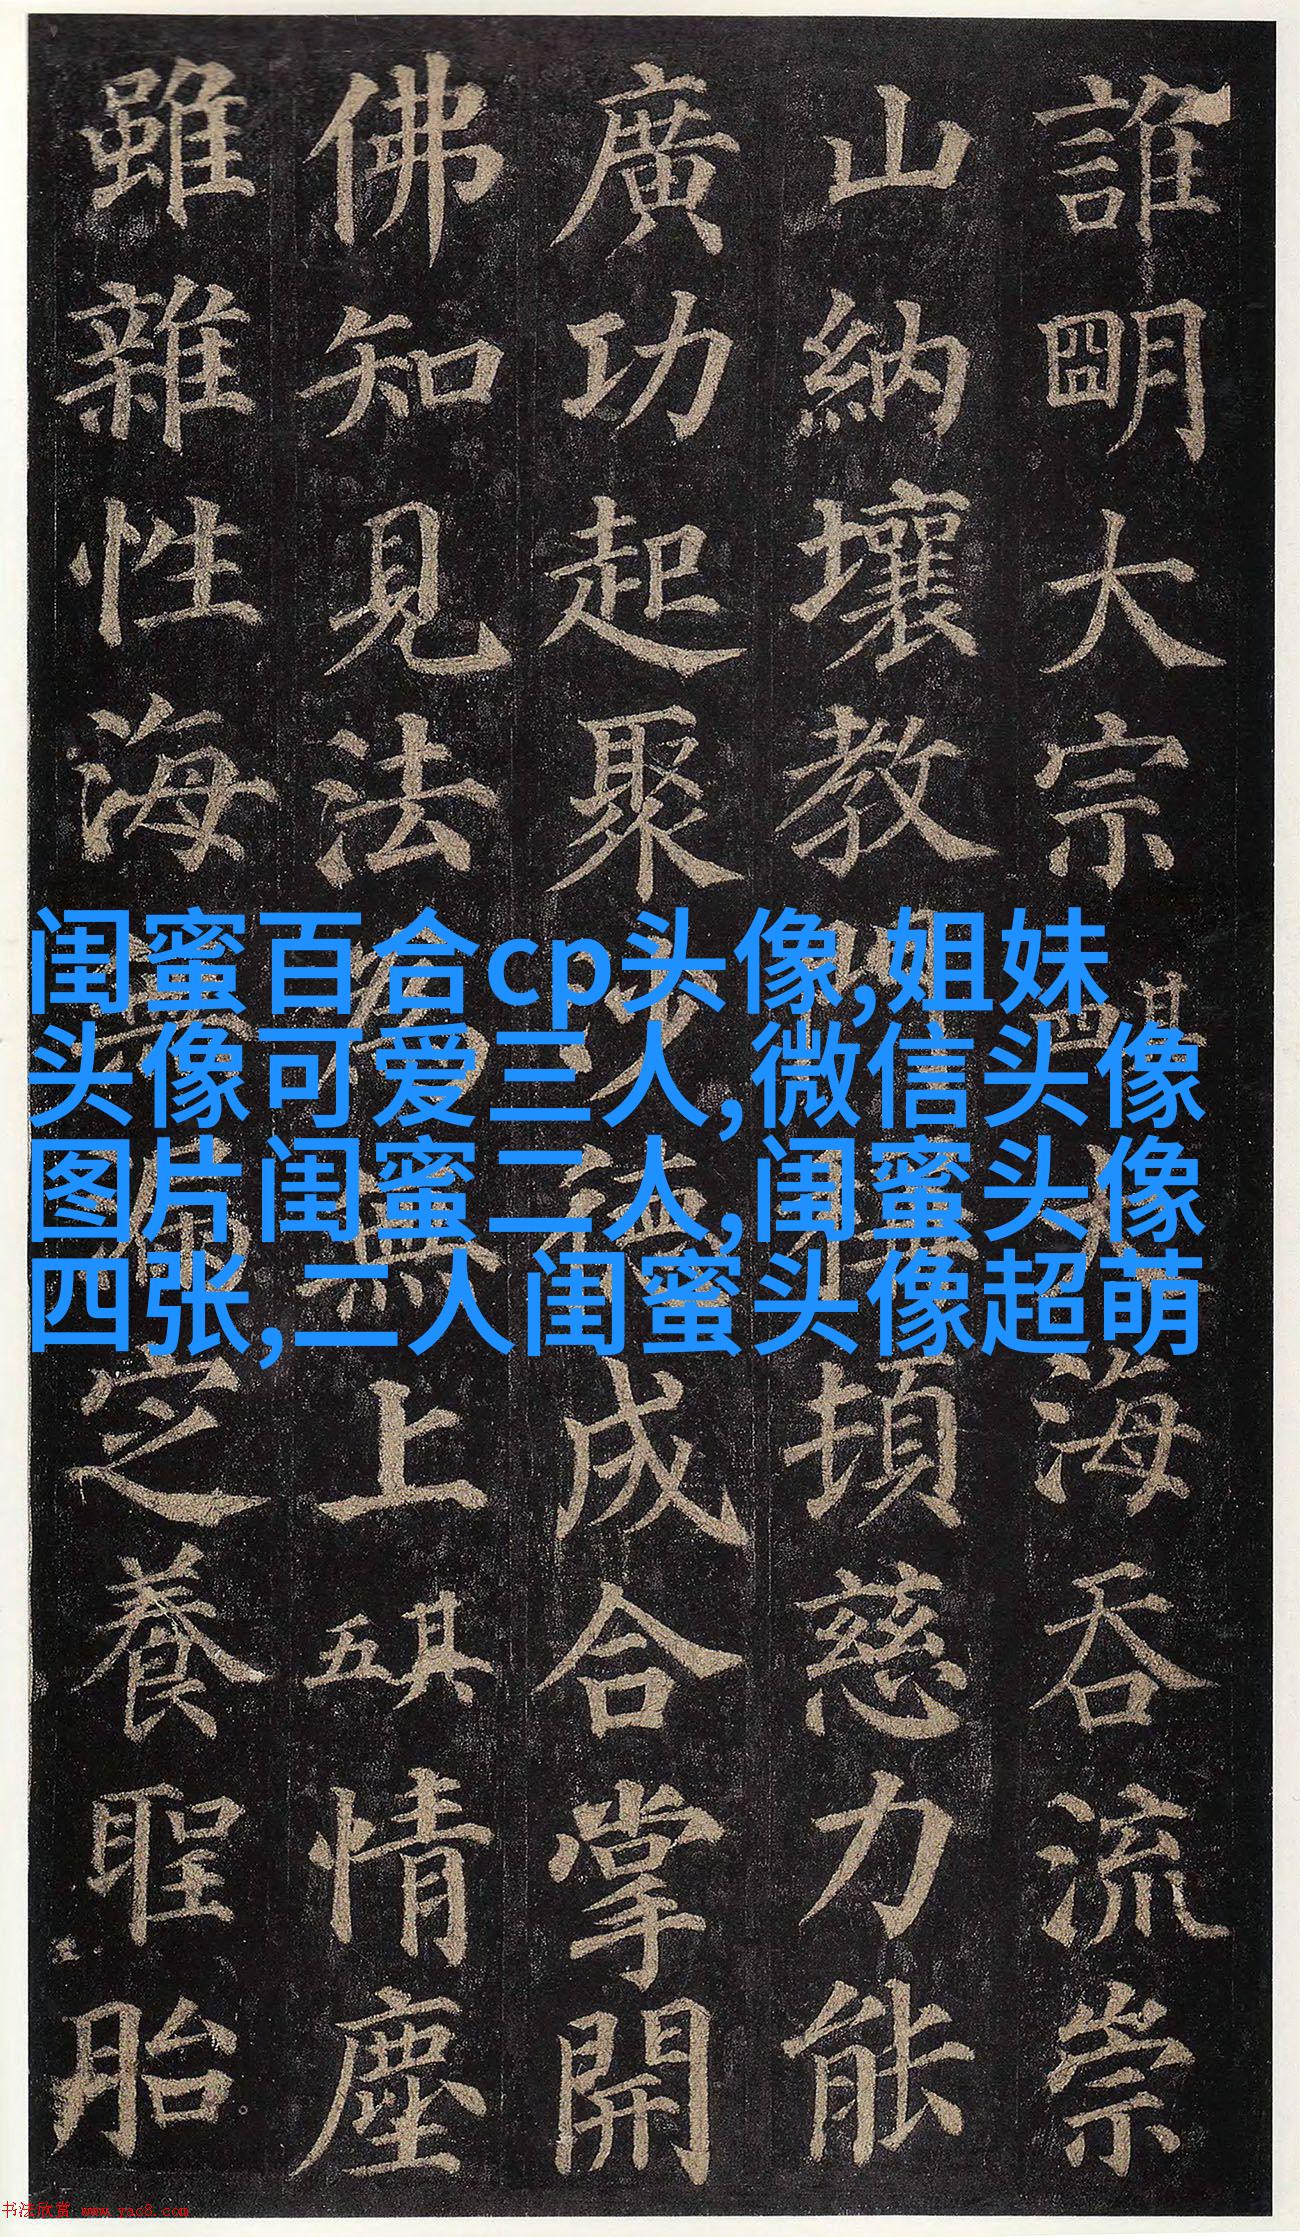 誰明大宗其四大海吞流崇
山納壤教頓慈力能
廣功起聚沙德成合掌開
佛知見法為無上其五情塵
雖雜性海漏定養聖胎
闺蜜百合cp头像,姐妹
头像可爱三人,微信头像
图片闺蜜二人,闺蜜头像
四张,二人闺蜜头像超萌
书法欣赏 www.yac8.com